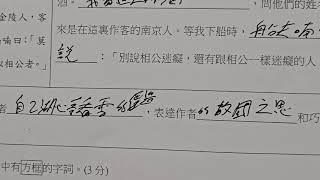 金陵人,客
酒。
問他們的姓
喃喃曰:「莫
來是在這裏作客的南京人。等我下船時,
似相公者。」
說:「別說相公迷癡,還有跟相公一樣迷癡的人
者自己湖心亭看雪經歷,表達作者的故國之思和巧
中有方框的字詞。(3分)